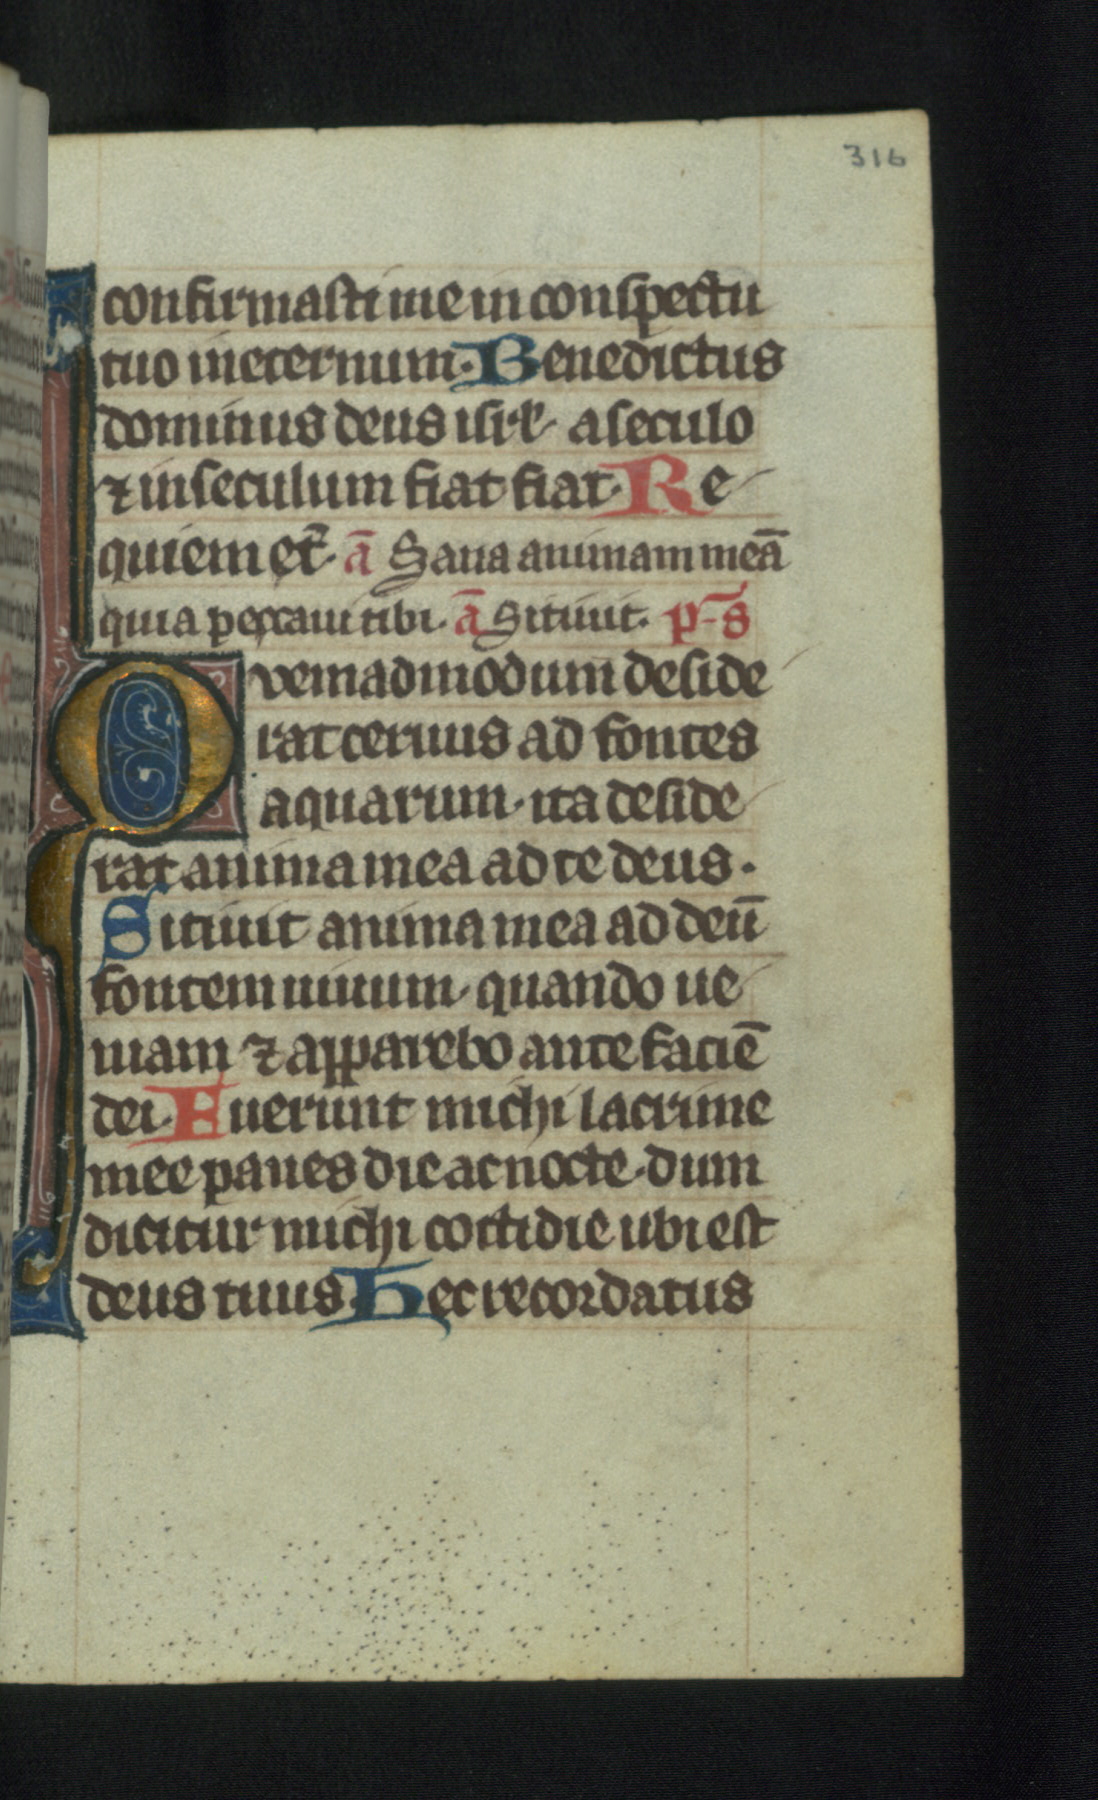 316
confirmasti me in conspectu
tuo ineternum. Benedictus
dominus deus isrl. a seculo
⁊ in seculum fiat fiat. Re
quiem et̾. ā Sana animam meā
quia peccaui tibi. ā Sitiuit. p̄s
Quemadmodum deside
rat ceruus ad fontes
aquarum. ita deside
rat anima mea ad te deus.
Sitiuit anima mea ad deū
fontem uiuum. quando ue
niam ⁊ apparebo ante faciē
dei. Fuerunt michi lacrime
mee panes die ac nocte. dum
dicitur michi cottidie ubi est
deus tuus Hec recordatus